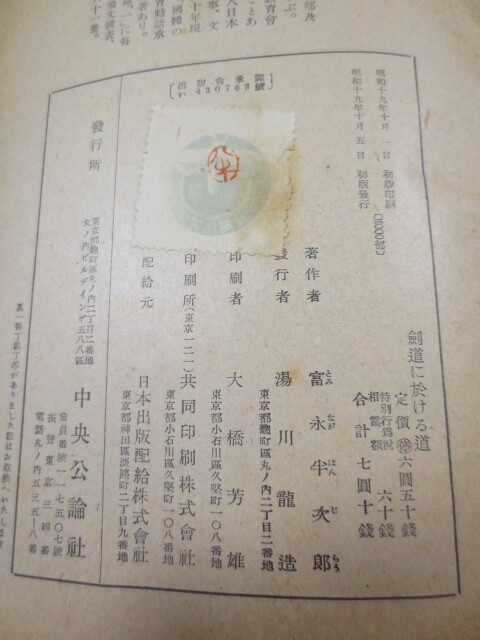 部及
ぶ。
育會
ことあ
人日本
事、文
十年現
國體の
育勅語承
著あり。
昭和十九年十月一日 初版印刷
昭和十九年十月五日 初版發行
〔5000部〕
劍道に於ける道
定價 六圓五十錢
特別行爲税相當額 六十錢
合計 七圓十錢
著作者 富永半次郎
とみ なが はん じ らう
發行者 湯川龍造
東京都麴町區丸ノ內二丁目二番地
印刷者 大橋芳雄
東京都小石川區久堅町一〇八番地
印刷所 (東京一二一) 共同印刷株式會社
東京都小石川區久堅町一〇八番地
配給元 日本出版配給株式會社
東京都神田區淡路町二丁目九番地
發行所 中央公論社
東京都麴町區丸ノ內二丁目二番地
丸ノ內ビルデイング五八八區
會員番號一一七五〇七號
振替東京三四番
電話丸ノ內五三五一八番
萬一落丁亂丁等がありました節はお取換へいたします